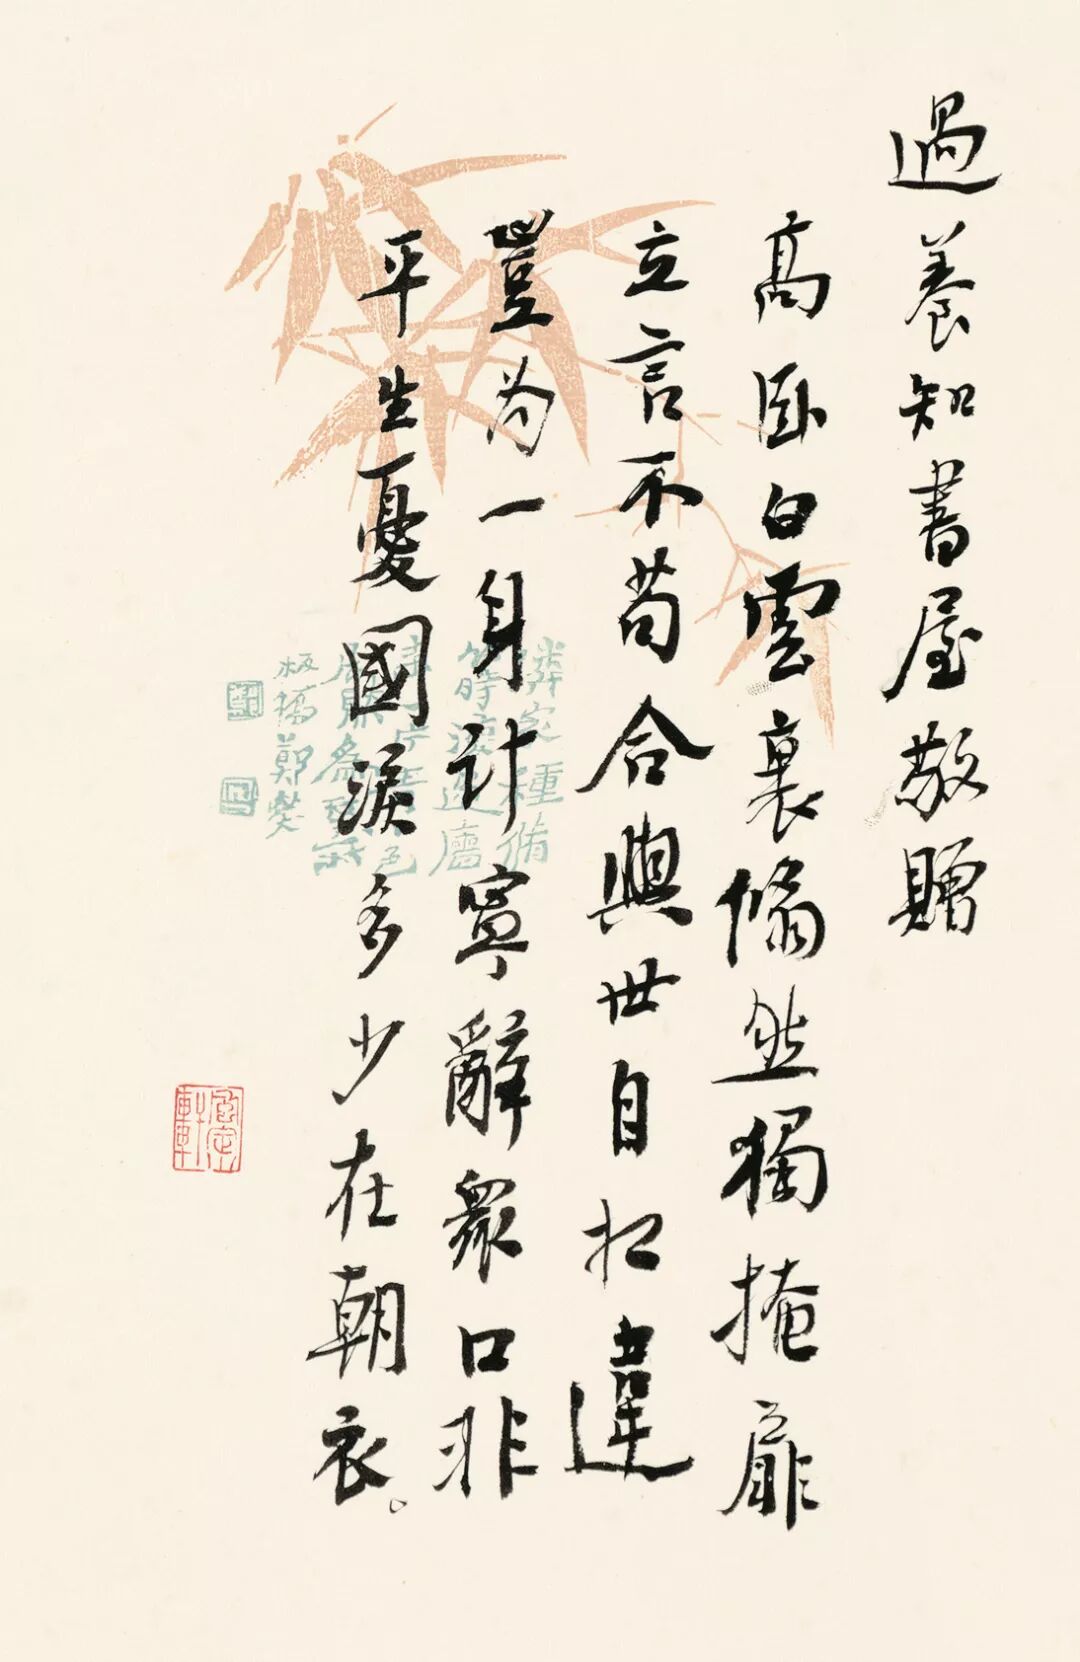 過養知書屋敬贈
高臥白雲裏翛然獨掩扉
立言不苟合與世自相違
豈為一身計寧辭衆口非
平生憂國淚多少在朝衣
板橋鄭燮